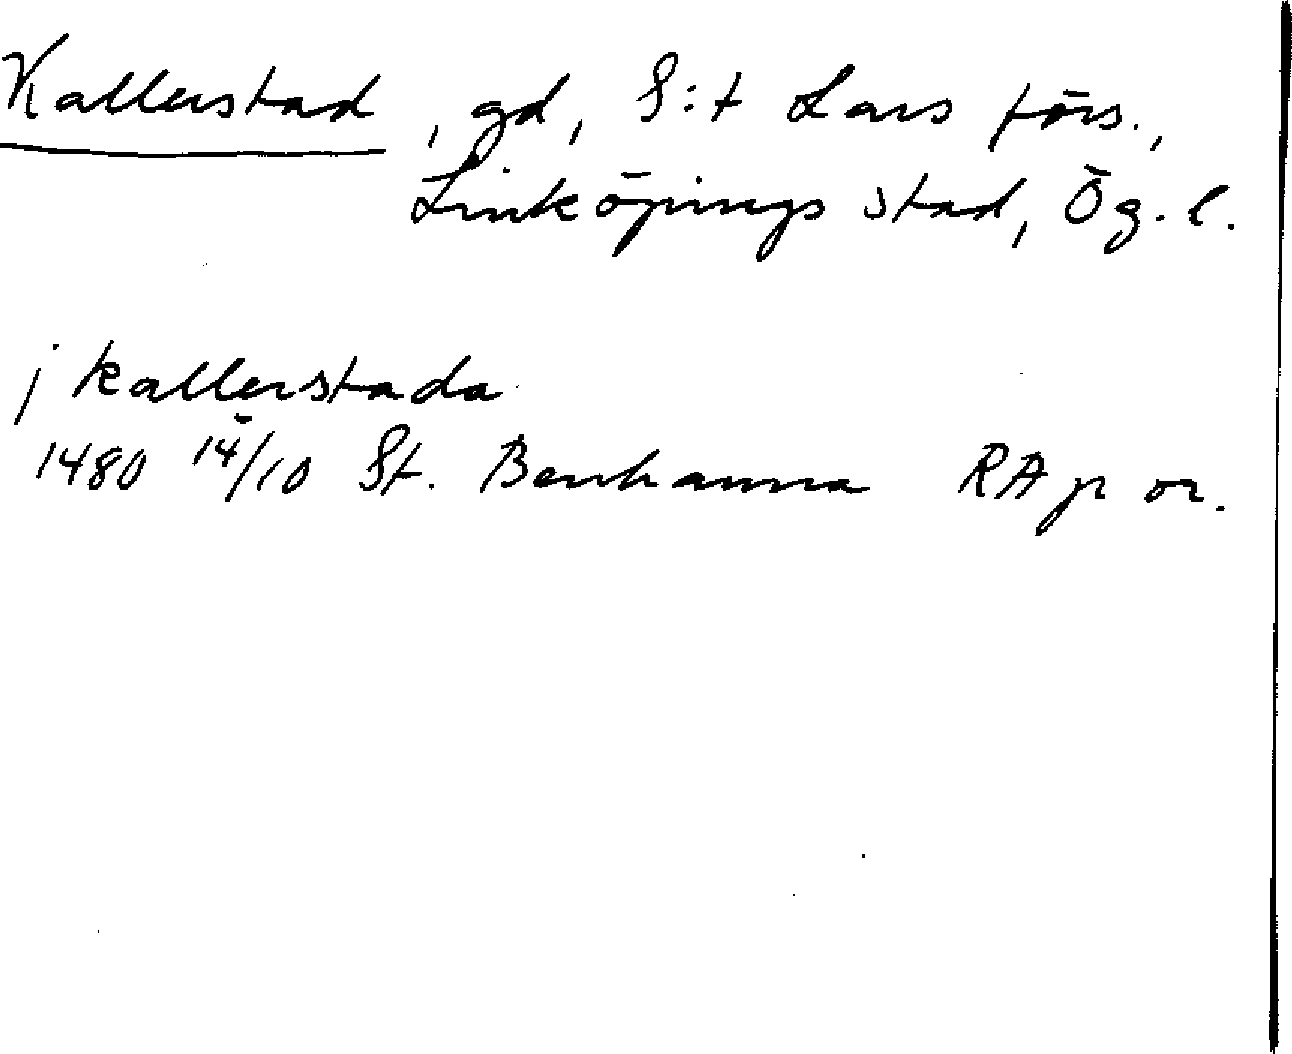 Kallerstad, gd, S:t Lars förs.,
Linköpings stad, Ög. l.
j kallerstada
1480 14/10 St. Benhamra RAp or.